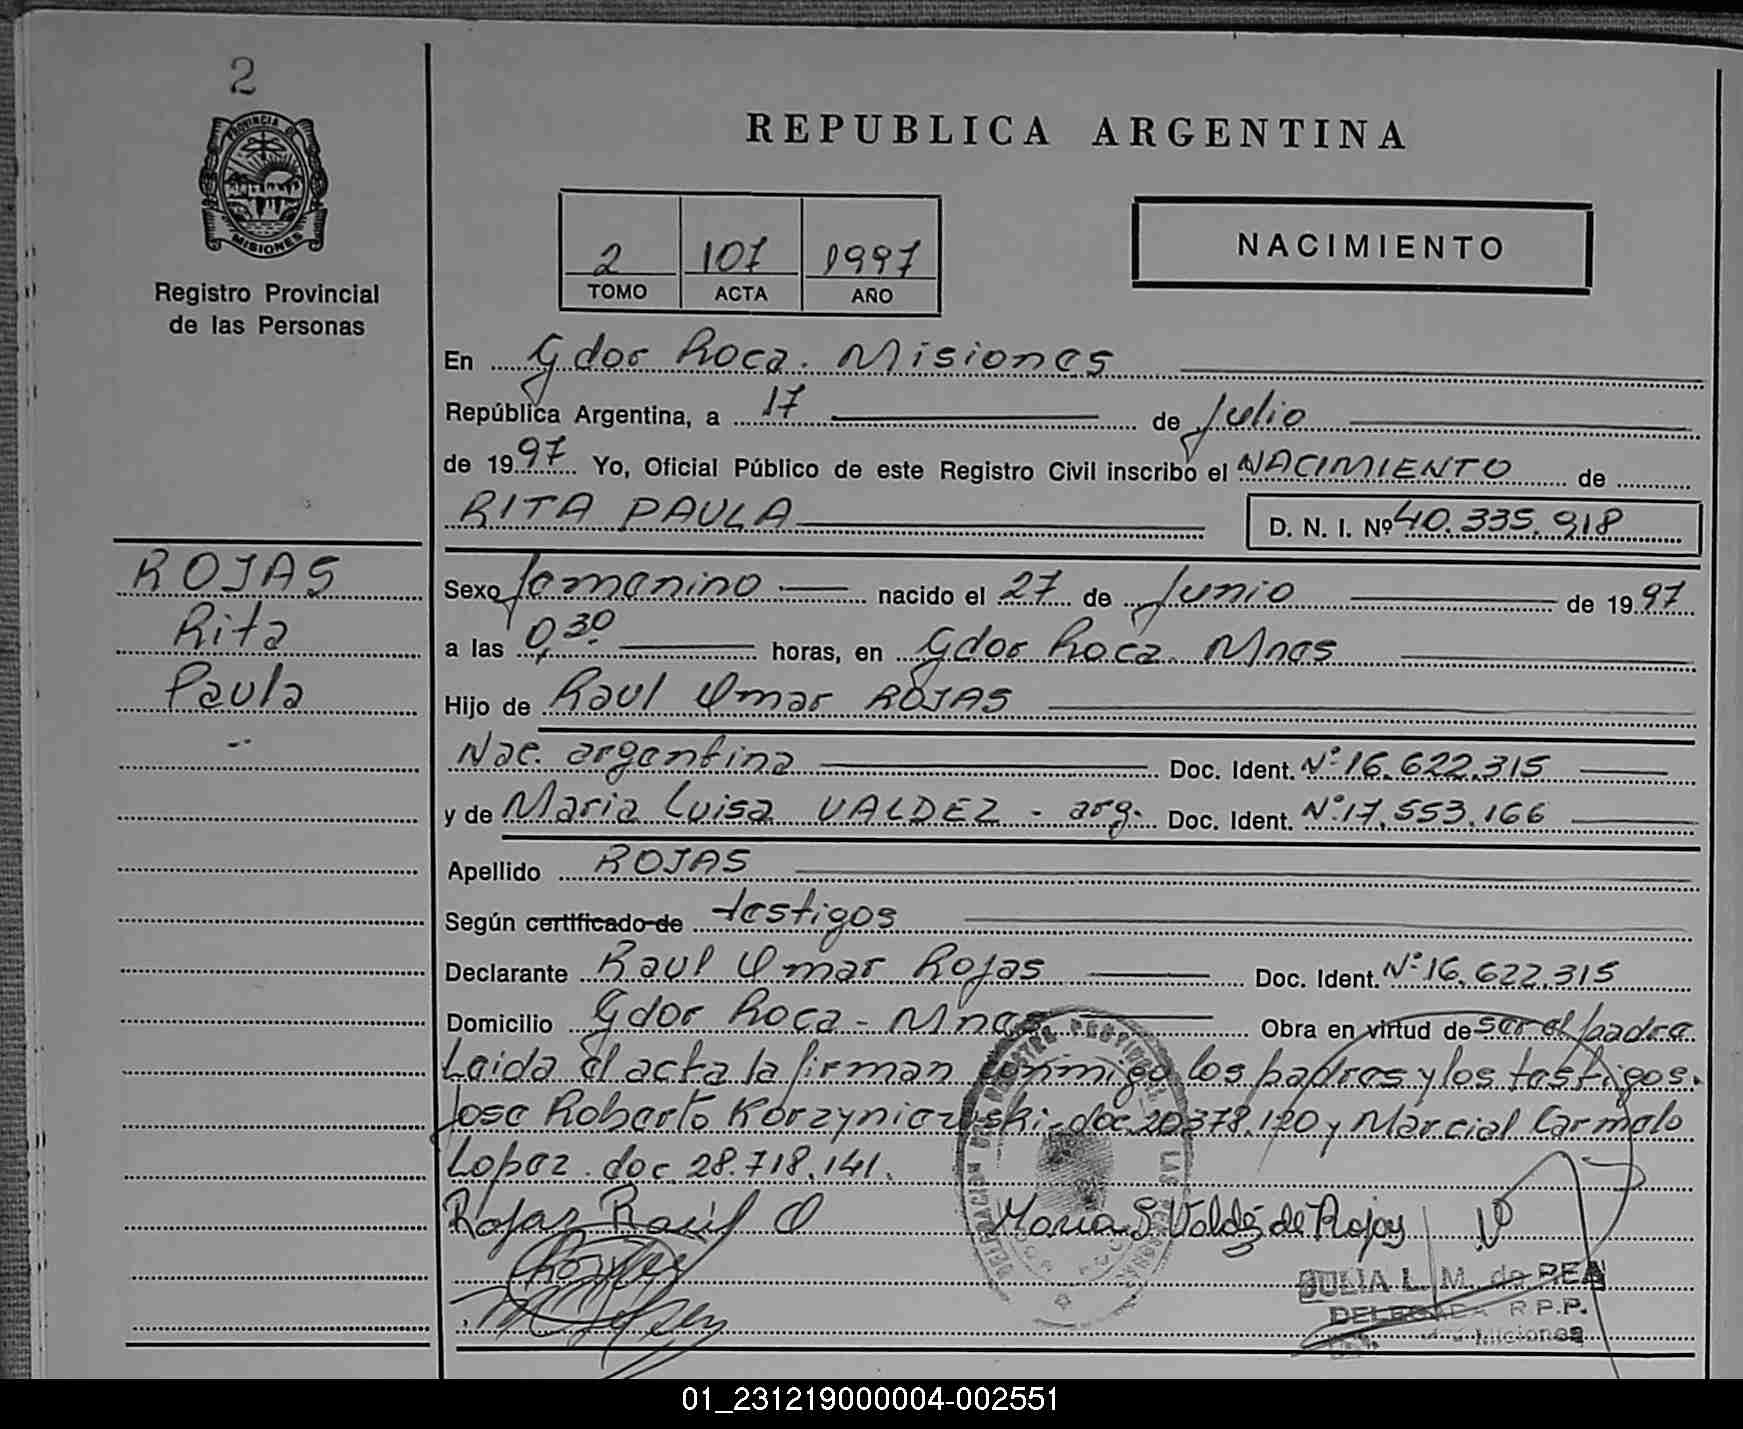 2
PROVINCIA DE
MISIONES
Registro Provincial
de las Personas
REPUBLICA ARGENTINA
2 107 1997
TOMO ACTA AÑO
NACIMIENTO
En Gdor Roca. Misiones
República Argentina, a 17 de Julio
de 1997 Yo, Oficial Público de este Registro Civil inscribo el NACIMIENTO de
RITA PAULA D. N. I. Nº 40.335.918
ROJAS
Rita
Paula
Sexo femenino nacido el 27 de Junio de 1997
a las 0,30 horas, en Gdor Roca. Mnes
Hijo de Raul Omar ROJAS
Nac. argentina Doc. Ident. Nº 16.622.315
y de Maria Luisa VALDEZ - arg. Doc. Ident. Nº 17.553.166
Apellido ROJAS
Según certificado de testigos
Declarante Raul Omar Rojas Doc. Ident. Nº 16.622.315
Domicilio Gdor Roca - Mnes Obra en virtud de ser el padre
Leida el acta la firman conmigo los padres y los testigos.
Jose Roberto Korzyniewski - doc. 20.378.120 y Marcial Carmelo
Lopez. doc. 28.718.141.
Rojas Raúl O Maria L Valdéz de Rojas
JULIA L. M. de REA
DELEGADA R.P.P.
Misiones
01_231219000004-002551